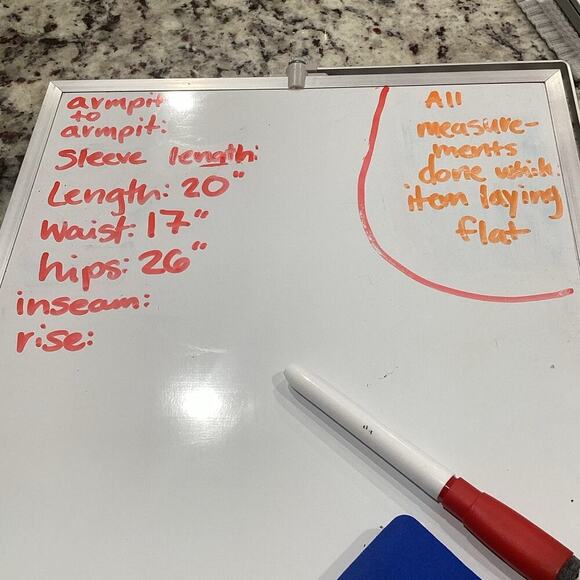 armpit
to
armpit:
Sleeve length:
Length: 20"
Waist: 17"
hips: 26"
inseam:
rise:
All
measure-
ments
done
item laying
flat